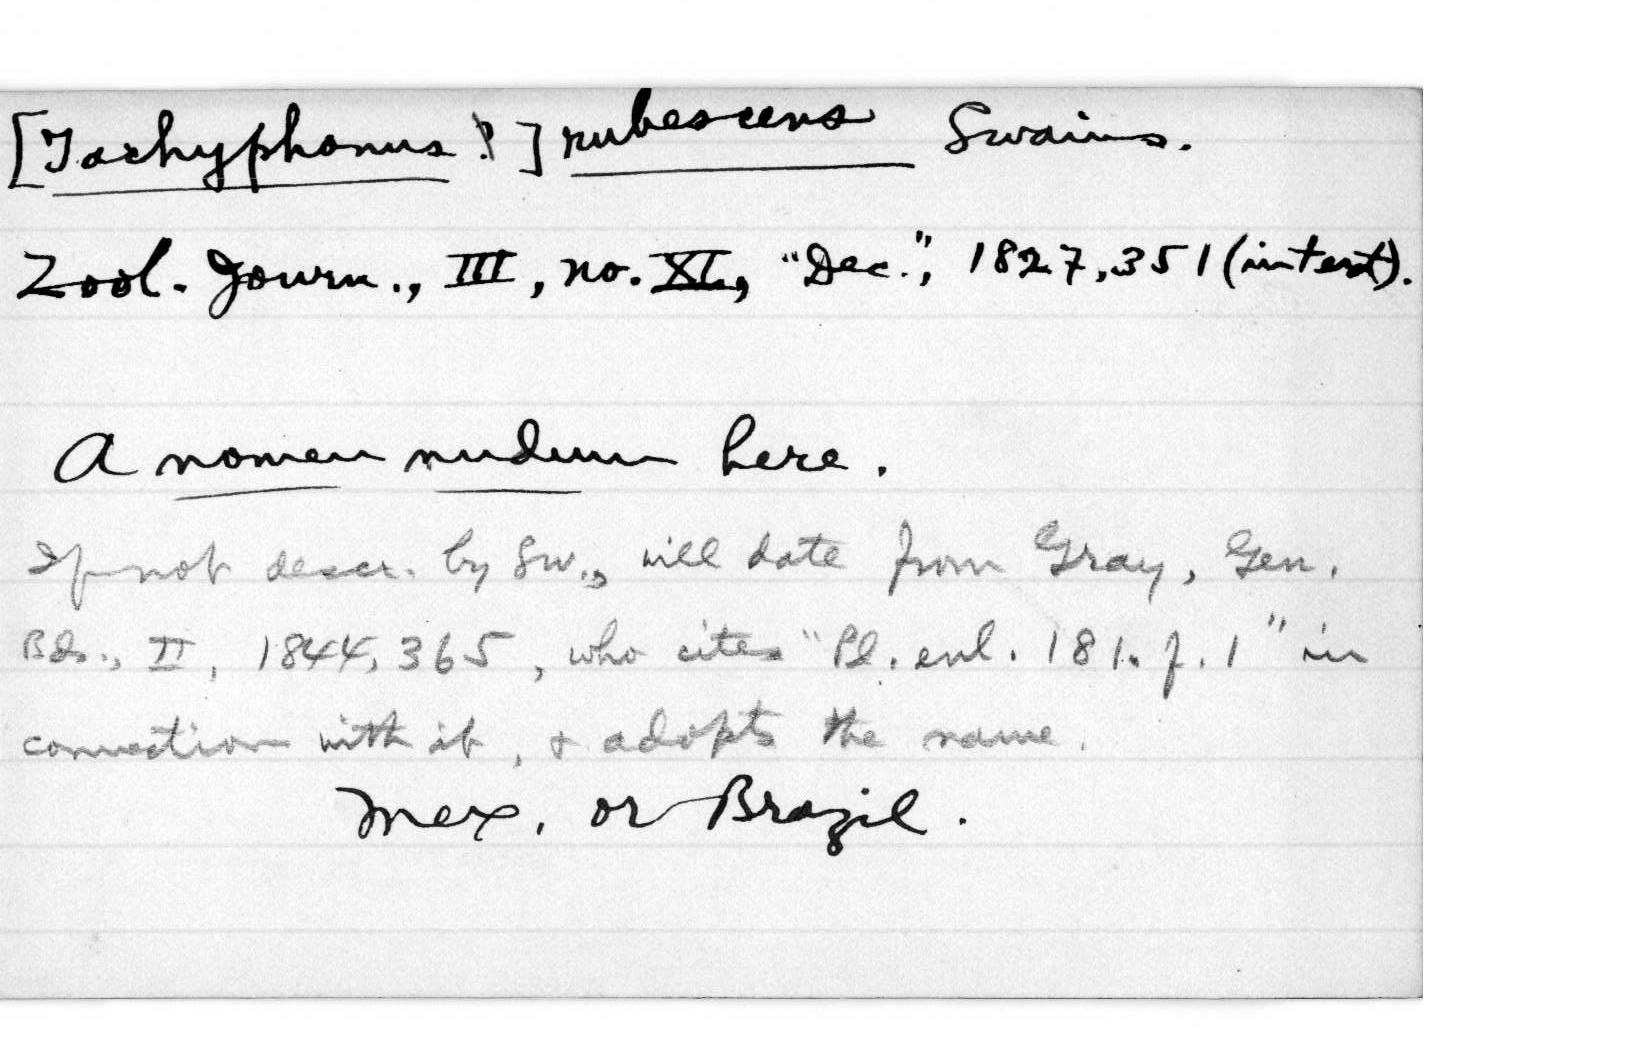 [Tachyphonus ?] rubescens Swains.
Zool. Journ., III, no. XI, "Dec.", 1827, 351 (in text).
A nomen nudum here.
If not descr. by Sw., will date from Gray, Gen.
Bds., II, 1844, 365, who cites "Pl. enl. 181. f. 1" in
connection with it, & adopts the name.
Mex. or Brazil.